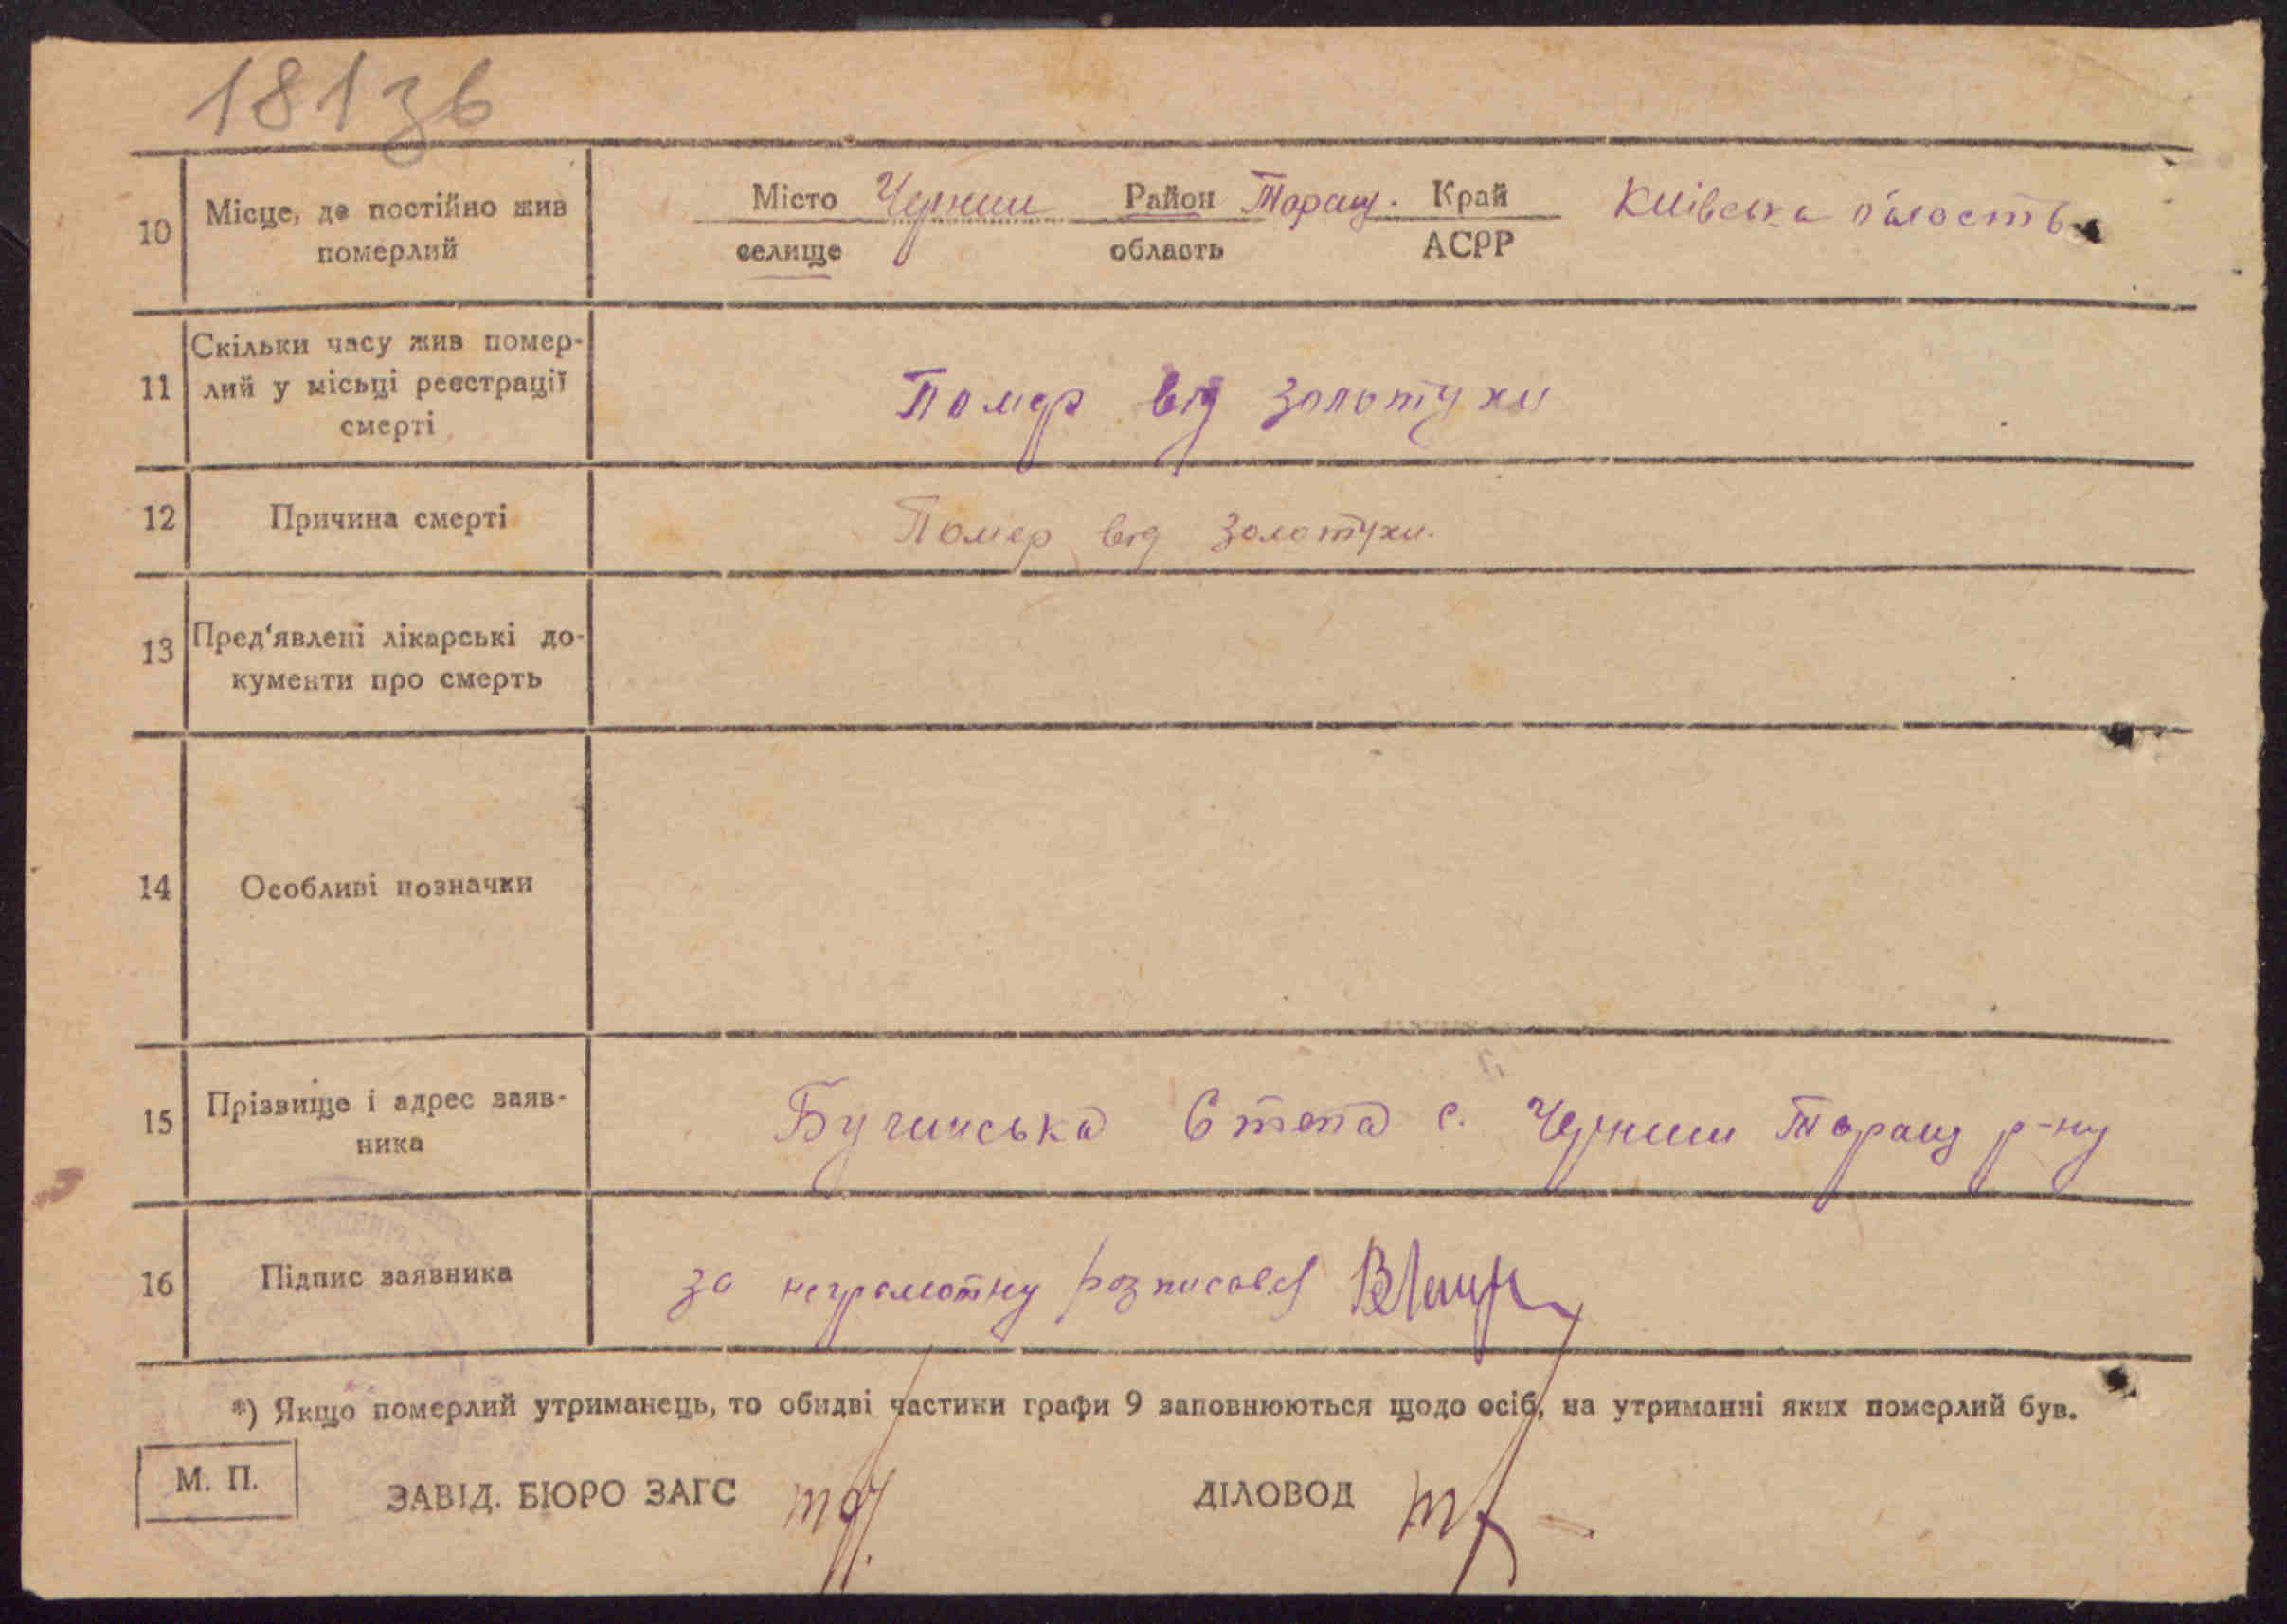 181зв
10 Місце, де постійно жив померлий
Місто Чернин Район Таращ. Край Київська область
селище область АСРР
11 Скільки часу жив помер-
лий у місьці реєстрації
смерті
Помер від золотухи
12 Причина смерті Помер від золотухи.
13 Пред'явлені лікарські до-
кументи про смерть
14 Особливі позначки
15 Прізвище і адрес заяв-
ника
Бучинська Степа с. Чернин Таращ р-ну
16 Підпис заявника за неграмотну розписався
*) Якщо померлий утриманець, то обидві частини графи 9 заповнюються щодо осіб, на утриманні яких померлий був.
М. П.
ЗАВІД. БЮРО ЗАГС ДІЛОВОД